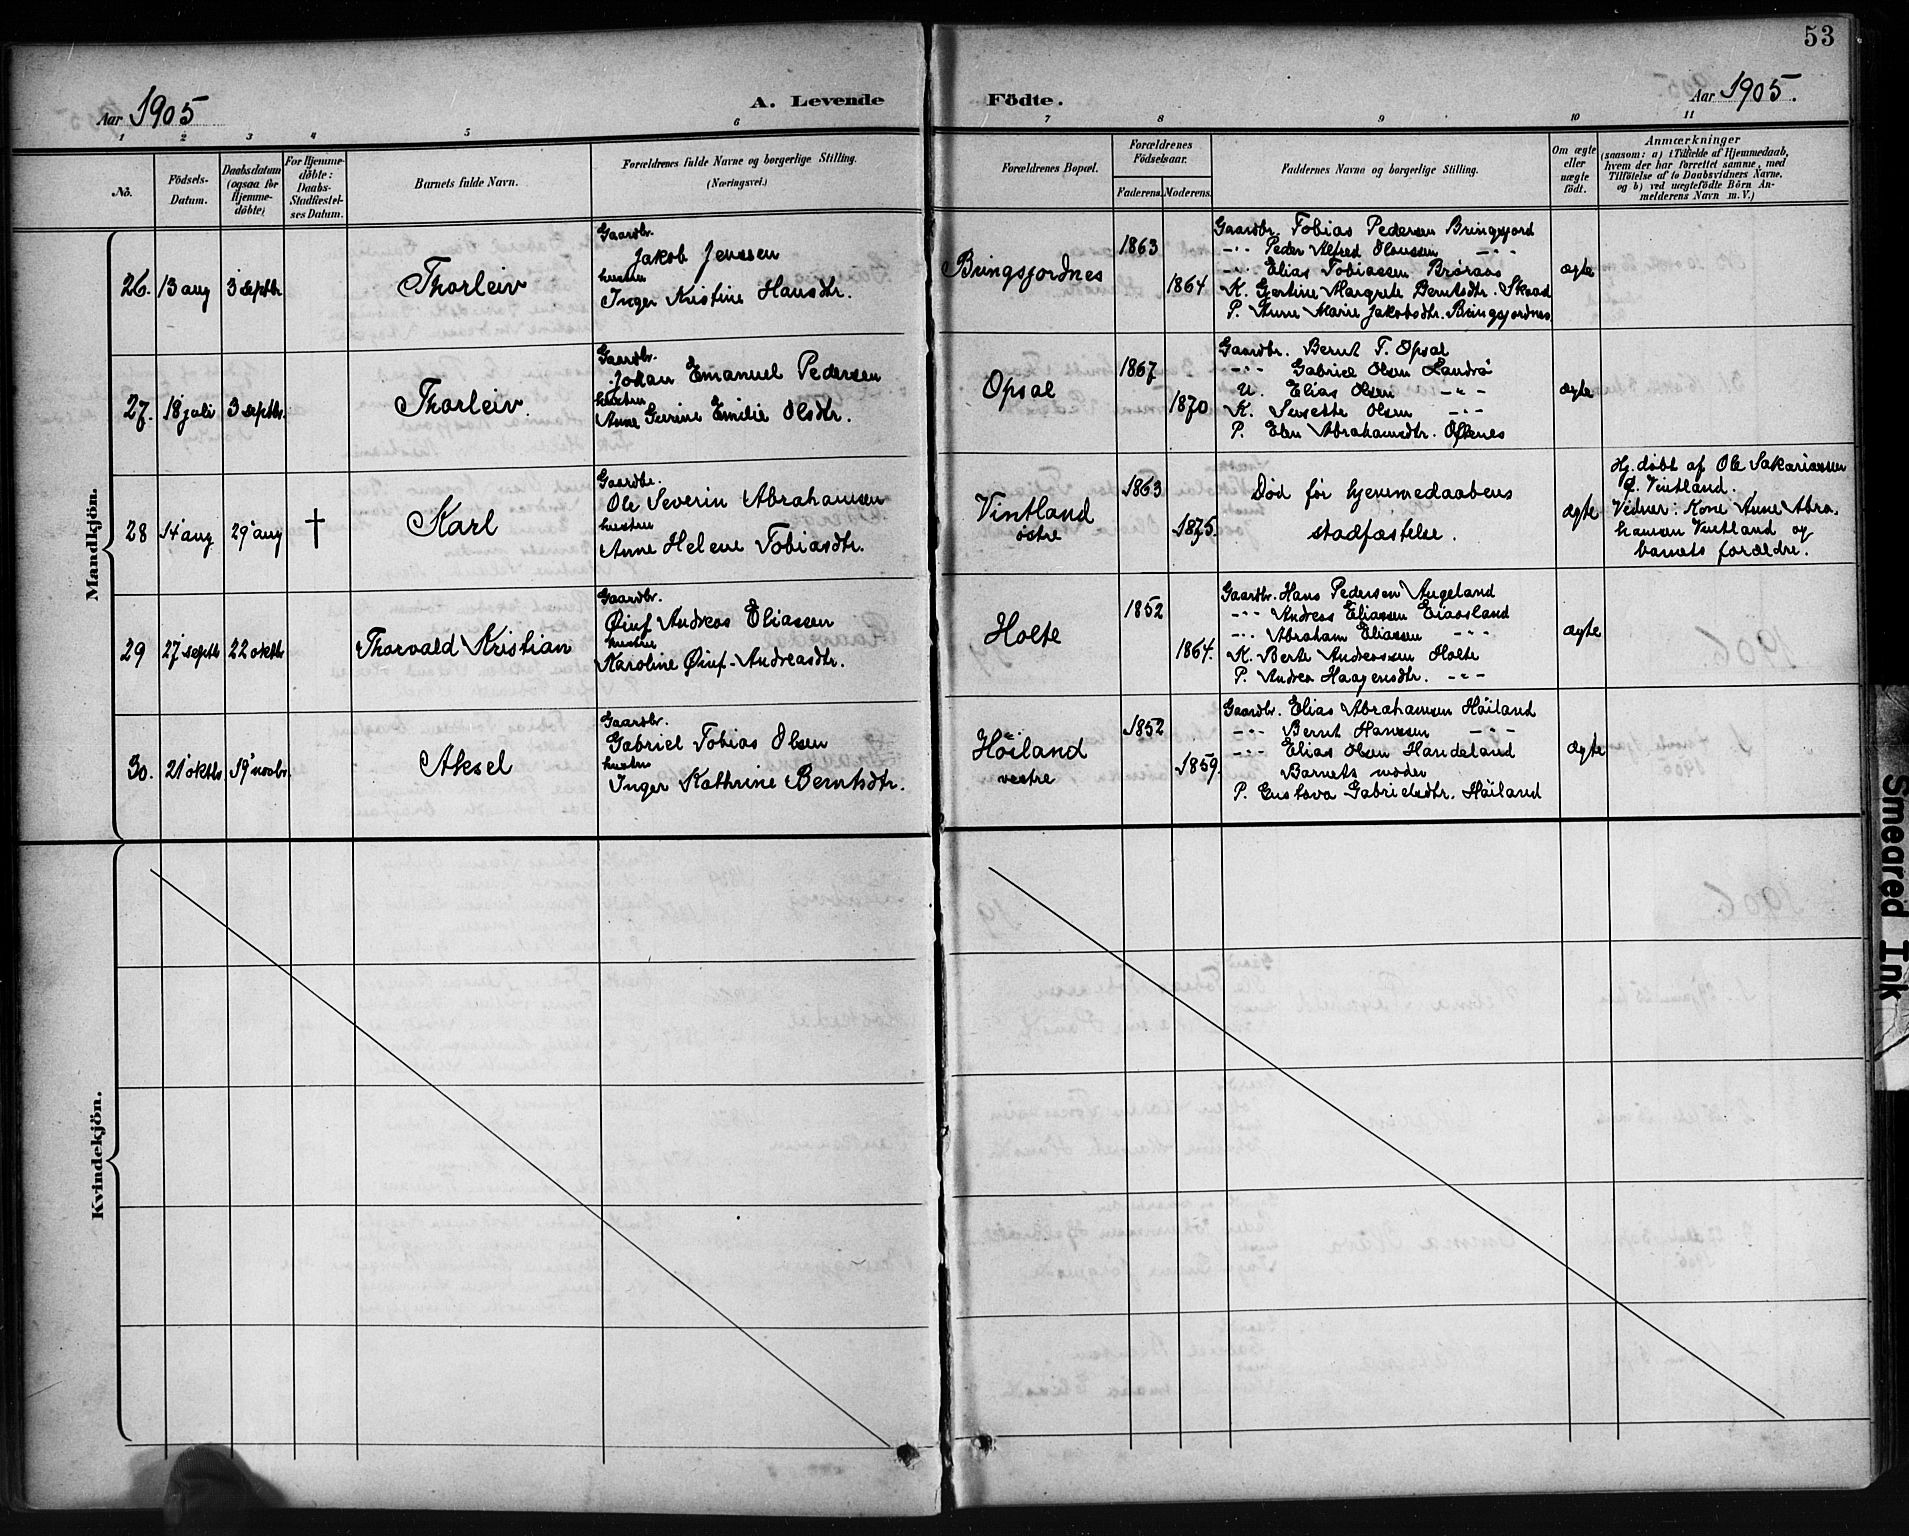 53
Aar 1905
A. Levende Födte.
Aar 1905.
1 2 3 4 5 6 7 8 9 10 11
No.
Födsels-Datum.
Daabsdatum (ogsaa for Hjemme-döbte)
For Hjemme-döbte: Daabs-Stadfæstel-ses Datum.
Barnets fulde Navn.
Forældrenes fulde Navne og borgerlige Stilling.
(Næringsvei.)
Forældrenes Bopæl.
Forældrenes Födselsaar.
Faderens. Moderens.
Faddernes Navne og borgerlige Stilling.
Om ægte eller uægte födt.
Anmærkninger
(saasom: a) i Tilfælde af Hjemmedaab, hvem der har forrettet samme, med Tilföielse af to Daabsvidners Navne, og b) ved uægtefödte Börn An-melderens Navn m. V.)
Mandkjön.
26. 13 aug 3 septbr. Thorleiv
Gaardbr.
Jakob Jenssen
hustru
Inger Kristine Hansdtr.
Bringsjordnes
1863
1864
Gaardbr. Tobias Pedersen Bringsjord
-"- Peder Alfred Olaussen -"-
-"- Elias Tobiassen Brøraas
K. Gertine Margrete Berntsdtr. Skaad
P. Anne Marie Jakobsdtr. Bringsjordnes
ægte
27. 18 juli 3 septbr. Thorleiv.
Gaardbr.
Johan Emanuel Pedersen
hustru
Anne Gurine Emilie Olsdtr.
Opsal
1867
1870
Gaardbr. Bernt T. Opsal
-"- Gabriel Olsen Landrø
U. Elias Olsen -"-
K. Susette Olsen -"-
P. Elen Abrahamsdtr. Oftenes
ægte
28 14 aug 29 aug † Karl
Gaardbr.
Ole Severin Abrahamsen
hustru
Anne Helene Tobiasdtr.
Vintland
østre
1863
1875.
Død før hjemmedaabens
stadfæstelse.
ægte
Hj. døbt af Ole Sakariassen
Ø. Vintland.
Vidner: Kone Anne Abra-
hamsen Vintland og
barnets forældre.
29 27 septb 22 oktb Thorvald Kristian
Gaardbr.
Øiuf Andreas Eliassen
hustru
Karoline Øiuf-Andreasdtr.
Holte
1852
1864.
Gaardbr. Hans Pedersen Augeland
-"- Andreas Eliassen Eiaasland
-"- Abraham Eliassen -"-
K. Berte Andreassen Holte
P. Andrea Haagensdtr. -"-
ægte
30. 21 oktb 19 novbr. Aksel
Gaardbr.
Gabriel Tobias Olsen
hustru
Inger Kathrine Berntsdtr.
Høiland
vestre
1852
1859.
Gaardbr. Elias Abrahamsen Høiland
-"- Bernt Hanssen -"-
-"- Elias Olsen Handeland
Barnets moder
P. Gustava Gabrielsdtr. Høiland
ægte
Kvindekjön.
Smeared Ink